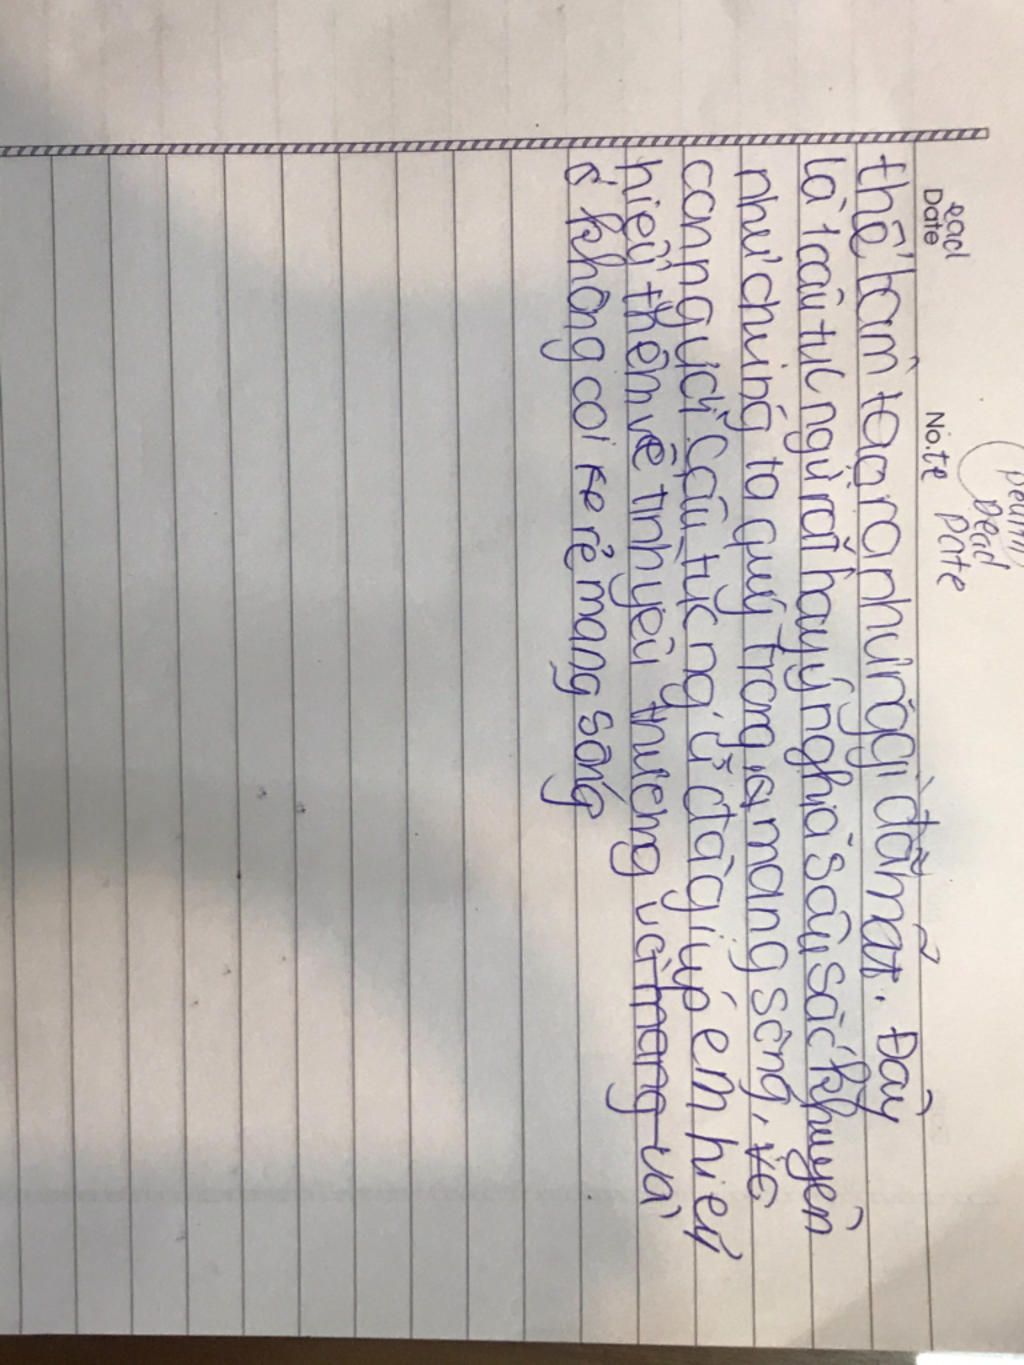 Pead
ead
Date
No.te Pate
thể làm tạo ra những gì đã mất. Đây
là 1 câu tục ngữ rất hay ý nghĩa sâu sắc khuyên
như chúng ta quý trọng mạng sống, về
con người. Câu tục ngữ đã giúp em hiểu
hiểu thêm về tình yêu thương và mạng và
không coi rẻ mạng sống